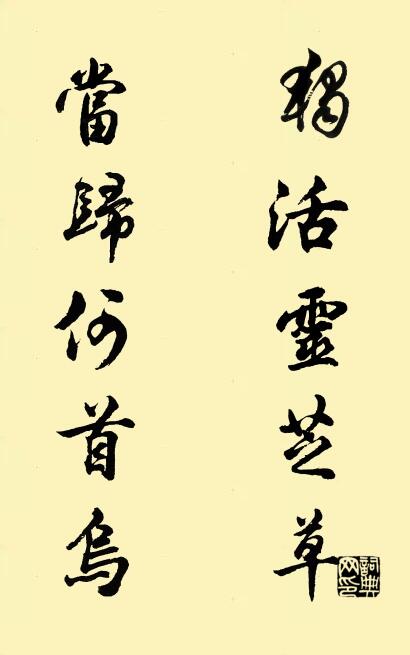 獨活靈芝草
當歸何首烏
詞典網印